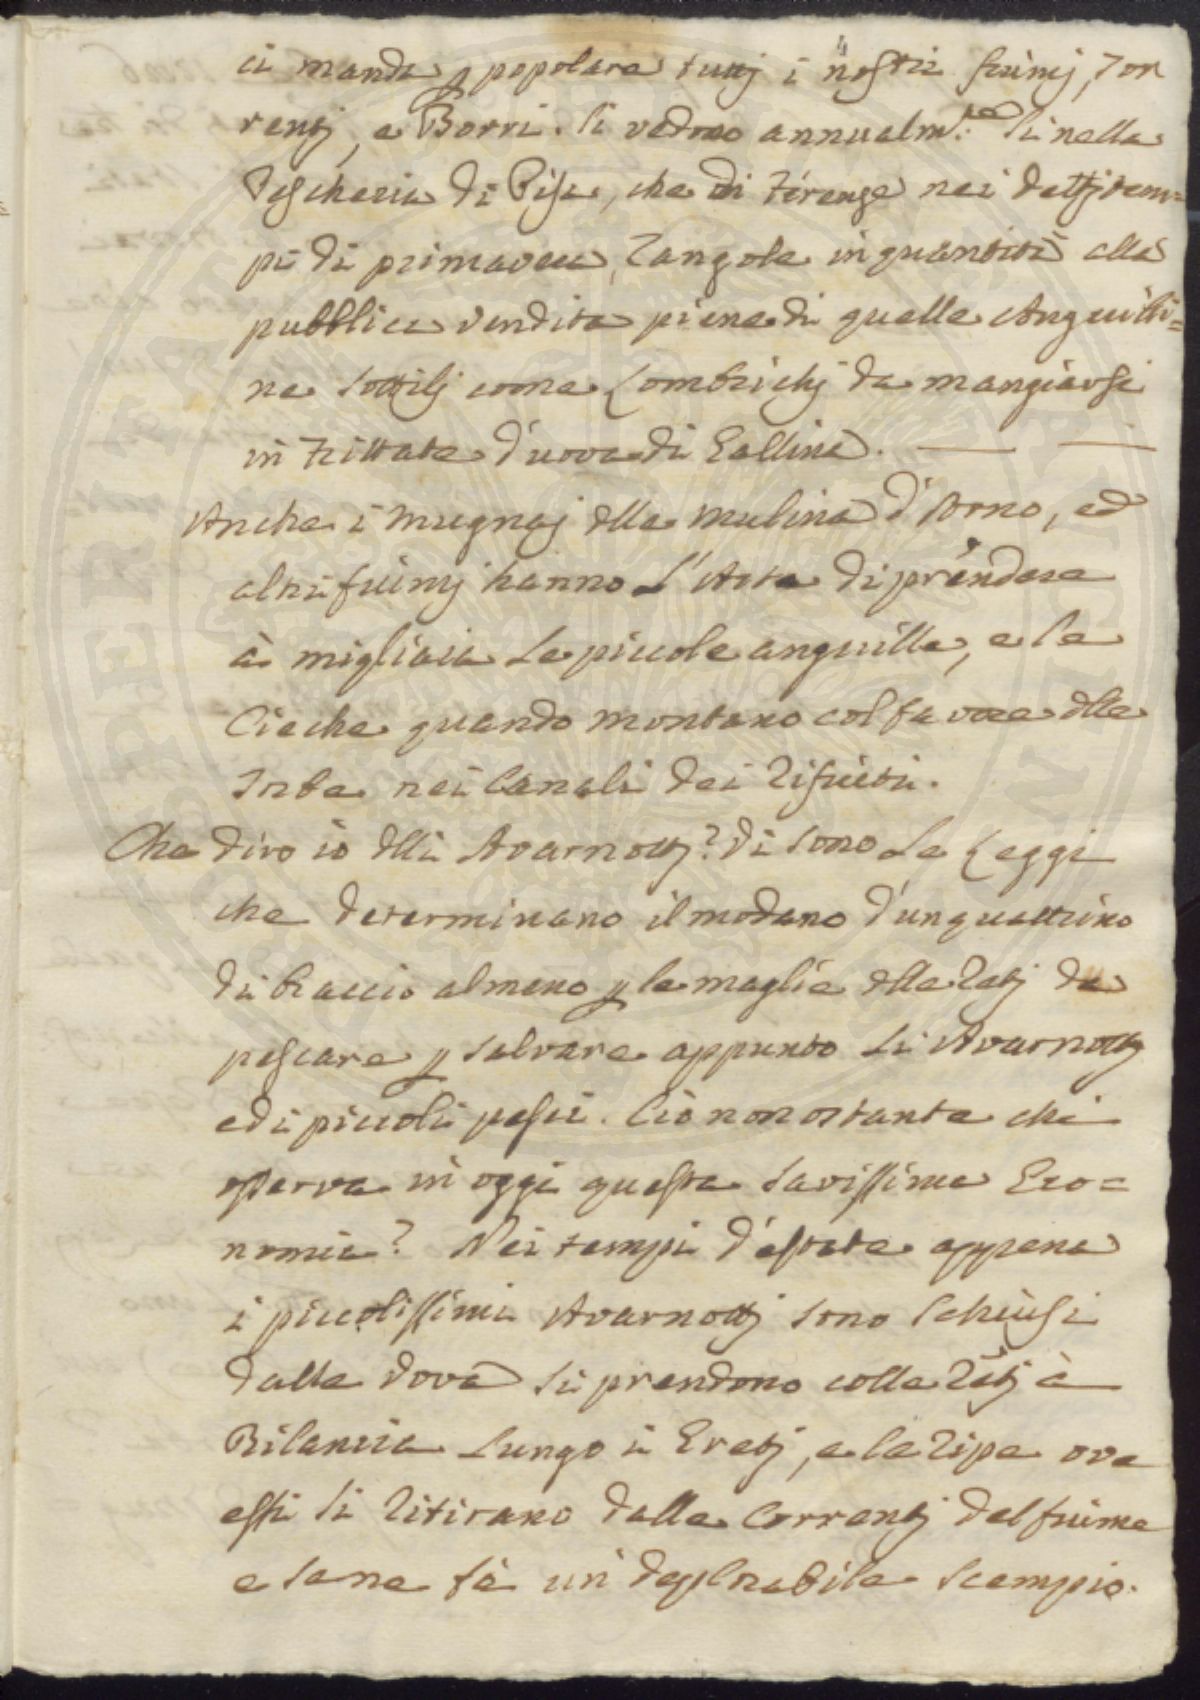 ci manda p popolare tuttj i nostri fiumj, Tor
rentj, e Borri. Si vedono annualm.te si nella
Pescheria di Pisa, che di Firenze nei dettj tem=
pi di primavera, Zangole in quantità alla
pubblica vendita piene di quelle Anguilli=
ne sottilj come Lombrichj da mangiarsi
in frittate d'uova di Gallina.
Anche i mugnaj dlle mulina d'Arno, ed
altri fiumj hanno l'Arte di prendere
à migliaia le piccole anguille, e le
Cieche quando montano col favore dlle
torbe nei Canali dei rifiuti.
Che diro io dlli Avarnottj? Vi sono le Leggi
che determinano il modano d'un quattrino
di braccio almeno p le maglie dlle retj da
pescare p salvare appunto li Avarnottj
ed i piccoli pesci. Ciò non ostante chi
osserva in oggi questa savissima Eco=
nomia? Nei tempi d'estate appena
i piccolissimi Avarnottj sono schiusi
dalle Uova si prendono colle retj à
Bilancia lungo i Gretj, e le ripe ove
essi si ritirano dalle Correntj del fiume
e se ne fà un deplorabile scempio.
PROSPERITATI AVG